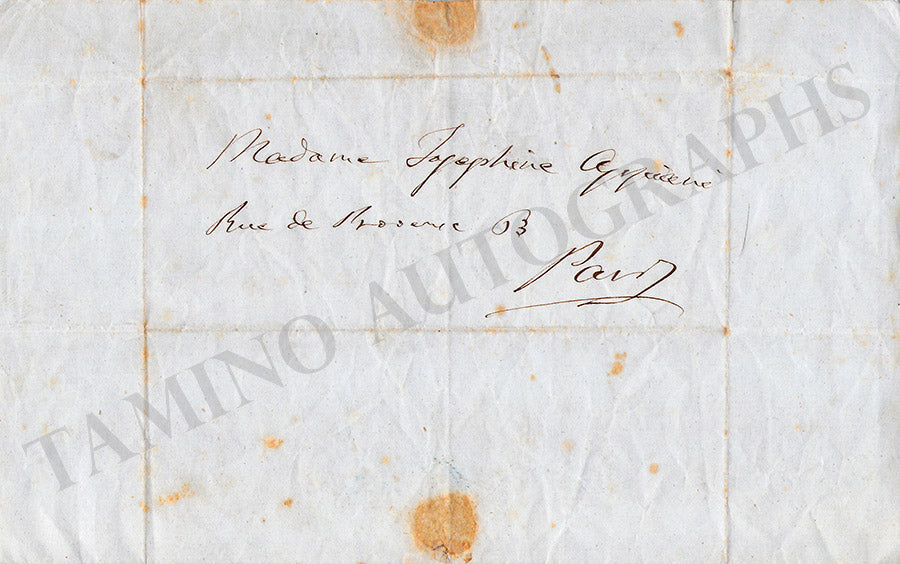 Madame Josephine Appiani
Rue de Provence 13
Paris
TAMINO AUTOGRAPHS